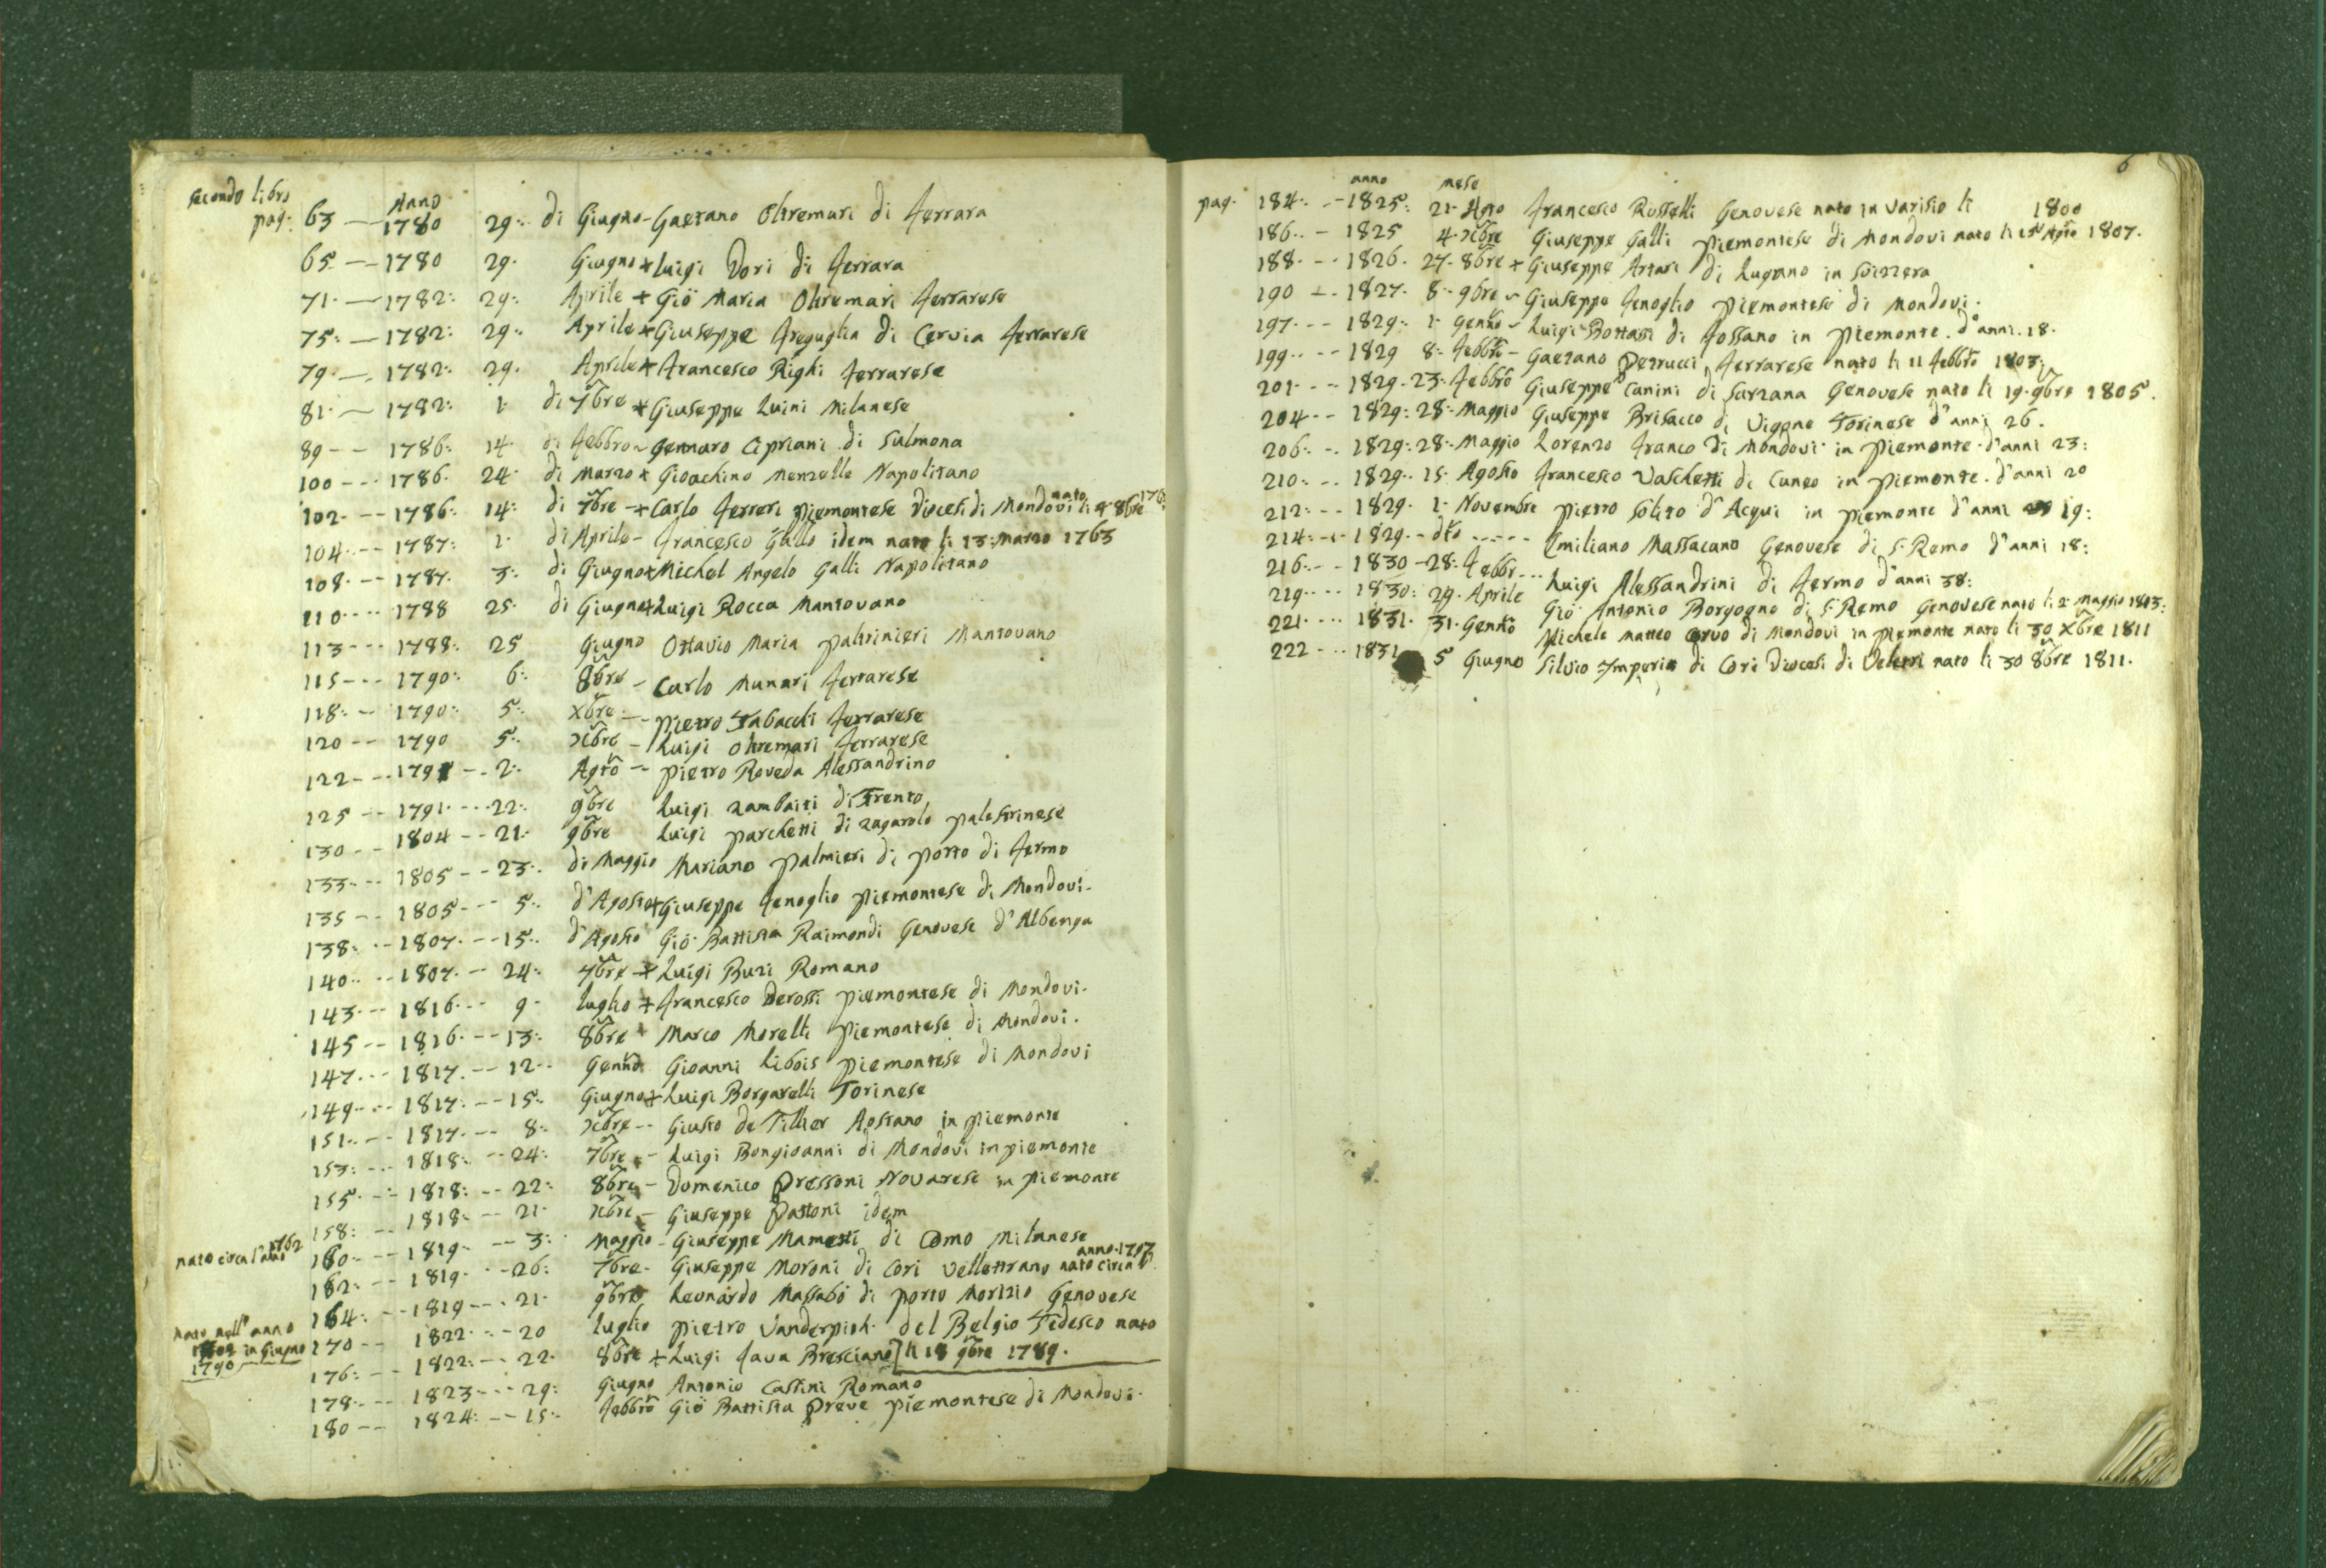 secondo libro Anno
pag: 63 -- 1780 29: di Giugno - Gaetano Oltremari di Ferrara
65 -- 1780 29. Giugno + Luigi Dori di Ferrara
71. -- 1782: 29: Aprile + Giõ Maria Oltremari Ferrarese
75: -- 1782: 29: Aprile + Giuseppe Freguglia di Cervia Ferrarese
79. -- 1782: 29. Aprile + Francesco Righi Ferrarese
81. -- 1782: 1. di 7bre + Giuseppe Luini Milanese
89 -- 1786: 14. di Febbro ~ Gennaro Cipriani di Sulmona
100 --- 1786. 24. di Marzo + Gioachino Menzelle Napolitano
102. -- 1786: 14: di 7bre + Carlo Ferreri piemontese Diocesi di Mondovi nato li 4 8bre
104. -- 1787: 1. di Aprile - Francesco Gallo idem nato li 13: Marzo 1763
108. -- 1787. 3: di Giugno + Michel Angelo Galli Napolitano
110 ---- 1788 25. di Giugno + Luigi Rocca Mantovano
113 --- 1788: 25 Giugno Ottavio Maria Paltrinieri Mantovano
115 --- 1790: 6: 8bre - Carlo Munari Ferrarese
118: -- 1790: 5: Xbre -- Pietro Tabacchi Ferrarese
120 -- 1790 5: Xbre - Luigi Oltremari Ferrarese
122 -- 1791 -- 2: Agto -- Pietro Roveda Alessandrino
125 -- 1791. --- 22: 9bre Luigi Zambaiti di Trento
130 -- 1804 -- 21: 9bre Luigi Parchetti di Zagarolo Palestrinese
133: -- 1805 -- 23: di Maggio Mariano Palmieri di Porto di Fermo
135 -- 1805 --- 5: d'Agosto + Giuseppe Fenoglio Piemontese di Mondovi.
138: -- 1807. -- 15: d'Agosto Giõ Battista Raimondi Genovese d'Albenga
140: -- 1807. -- 24: 7bre + Luigi Buzi Romano
143. -- 1816 --- 9. luglio + Francesco Derossi piemontese di Mondovi.
145 -- 1816. -- 13: 8bre Marco Morelli Piemontese di Mondovi.
147. -- 1817. -- 12. Gennõ Gioanni Libois Piemontese di Mondovi
149 --- 1817: -- 15: Giugno + Luigi Borgarelli Torinese
151. -- 1817. -- 8: Xbre -- Giusto De Tillier Aostano in piemonte
153: -- 1818: -- 24: 7bre - Luigi Bongioanni di Mondovi in piemonte
155. -- 1818: -- 22: 8bre - Domenico Pressoni Novarese in piemonte
158: -- 1818. -- 21. Xbre - Giuseppe Pastoni idem
nato circa l'anno 1762 160 -- 1819. -- 3: Maggio - Giuseppe Mametti di Como Milanese
162: -- 1819. -- 26: 7bre - Giuseppe Moroni di Cori Vellettrano nato circa l'anno
164: -- 1819 --- 21. 9bre Leonardo Massabò di Porto Morizio Genovese
nato nell'anno 170 -- 1822 --- 20 luglio Pietro Vanderpish. del Belgio Tedesco nato
in Giugno 1790 176: -- 1822: -- 22. 8bre + Luigi Fava Bresciano [li 18 9bre 1789.
178. -- 1823 --- 29: Giugno Antonio Cassini Romano
180 -- 1824: -- 15: Febbrõ Giõ Battista Preve Piemontese di Mondovi.
6
anno mese
pag. 184: -- 1825: 21. Agto Francesco Rosselli Genovese nato in Varisio li 1800
186. - 1825 4. Xbre Giuseppe Galli Piemontese di Mondovi nato li 15 Agto 1807.
188. -- 1826. 27. 8bre + Giuseppe Artari di Lugano in Svizzera
190 -- 1827. 8. 9bre ~ Giuseppe Fenoglio Piemontese di Mondovi.
197. -- 1829: 1. Gennõ - Luigi Bottassi di Fossano in Piemonte. d'anni. 18.
199. -- 1829 8: Febbrõ - Gaetano Petrucci Ferrarese nato li 11 Febbrõ 1807:
201 --- 1829. 23. Febbrõ Giuseppe Canini di Sarzana Genovese nato li 19. 9bre 1805.
204 -- 1829: 28: Maggio Giuseppe Brisacco di Vigone Torinese d'anni 26.
206: -- 1829: 28. Maggio Lorenzo Franco di Mondovi in Piemonte. d'anni 23:
210: -- 1829. 15. Agosto Francesco Vaschetti di Cuneo in Piemonte. d'anni 20
212: -- 1829. 1. Novembre Pietro Solito d'Acqui in piemonte d'anni 19:
214: -- 1829 -- dto ----- Emiliano Massacano Genovese di S. Remo d'anni 18:
216: -- 1830 - 28: Febbr --- Luigi Alessandrini di Fermo d'anni 38:
219 --- 1830: 29. Aprile Giõ Antonio Borgogno di S. Remo Genovese nato li 2 Maggio 1803:
221. --- 1831. 31. Gennõ Michele Matteo Corvo di Mondovi in Piemonte nato li 30 Xbre 1811
222 --- 1831 5 Giugno Silvio Imperia di Cori Diocesi di Veletri nato li 30 8bre 1811.